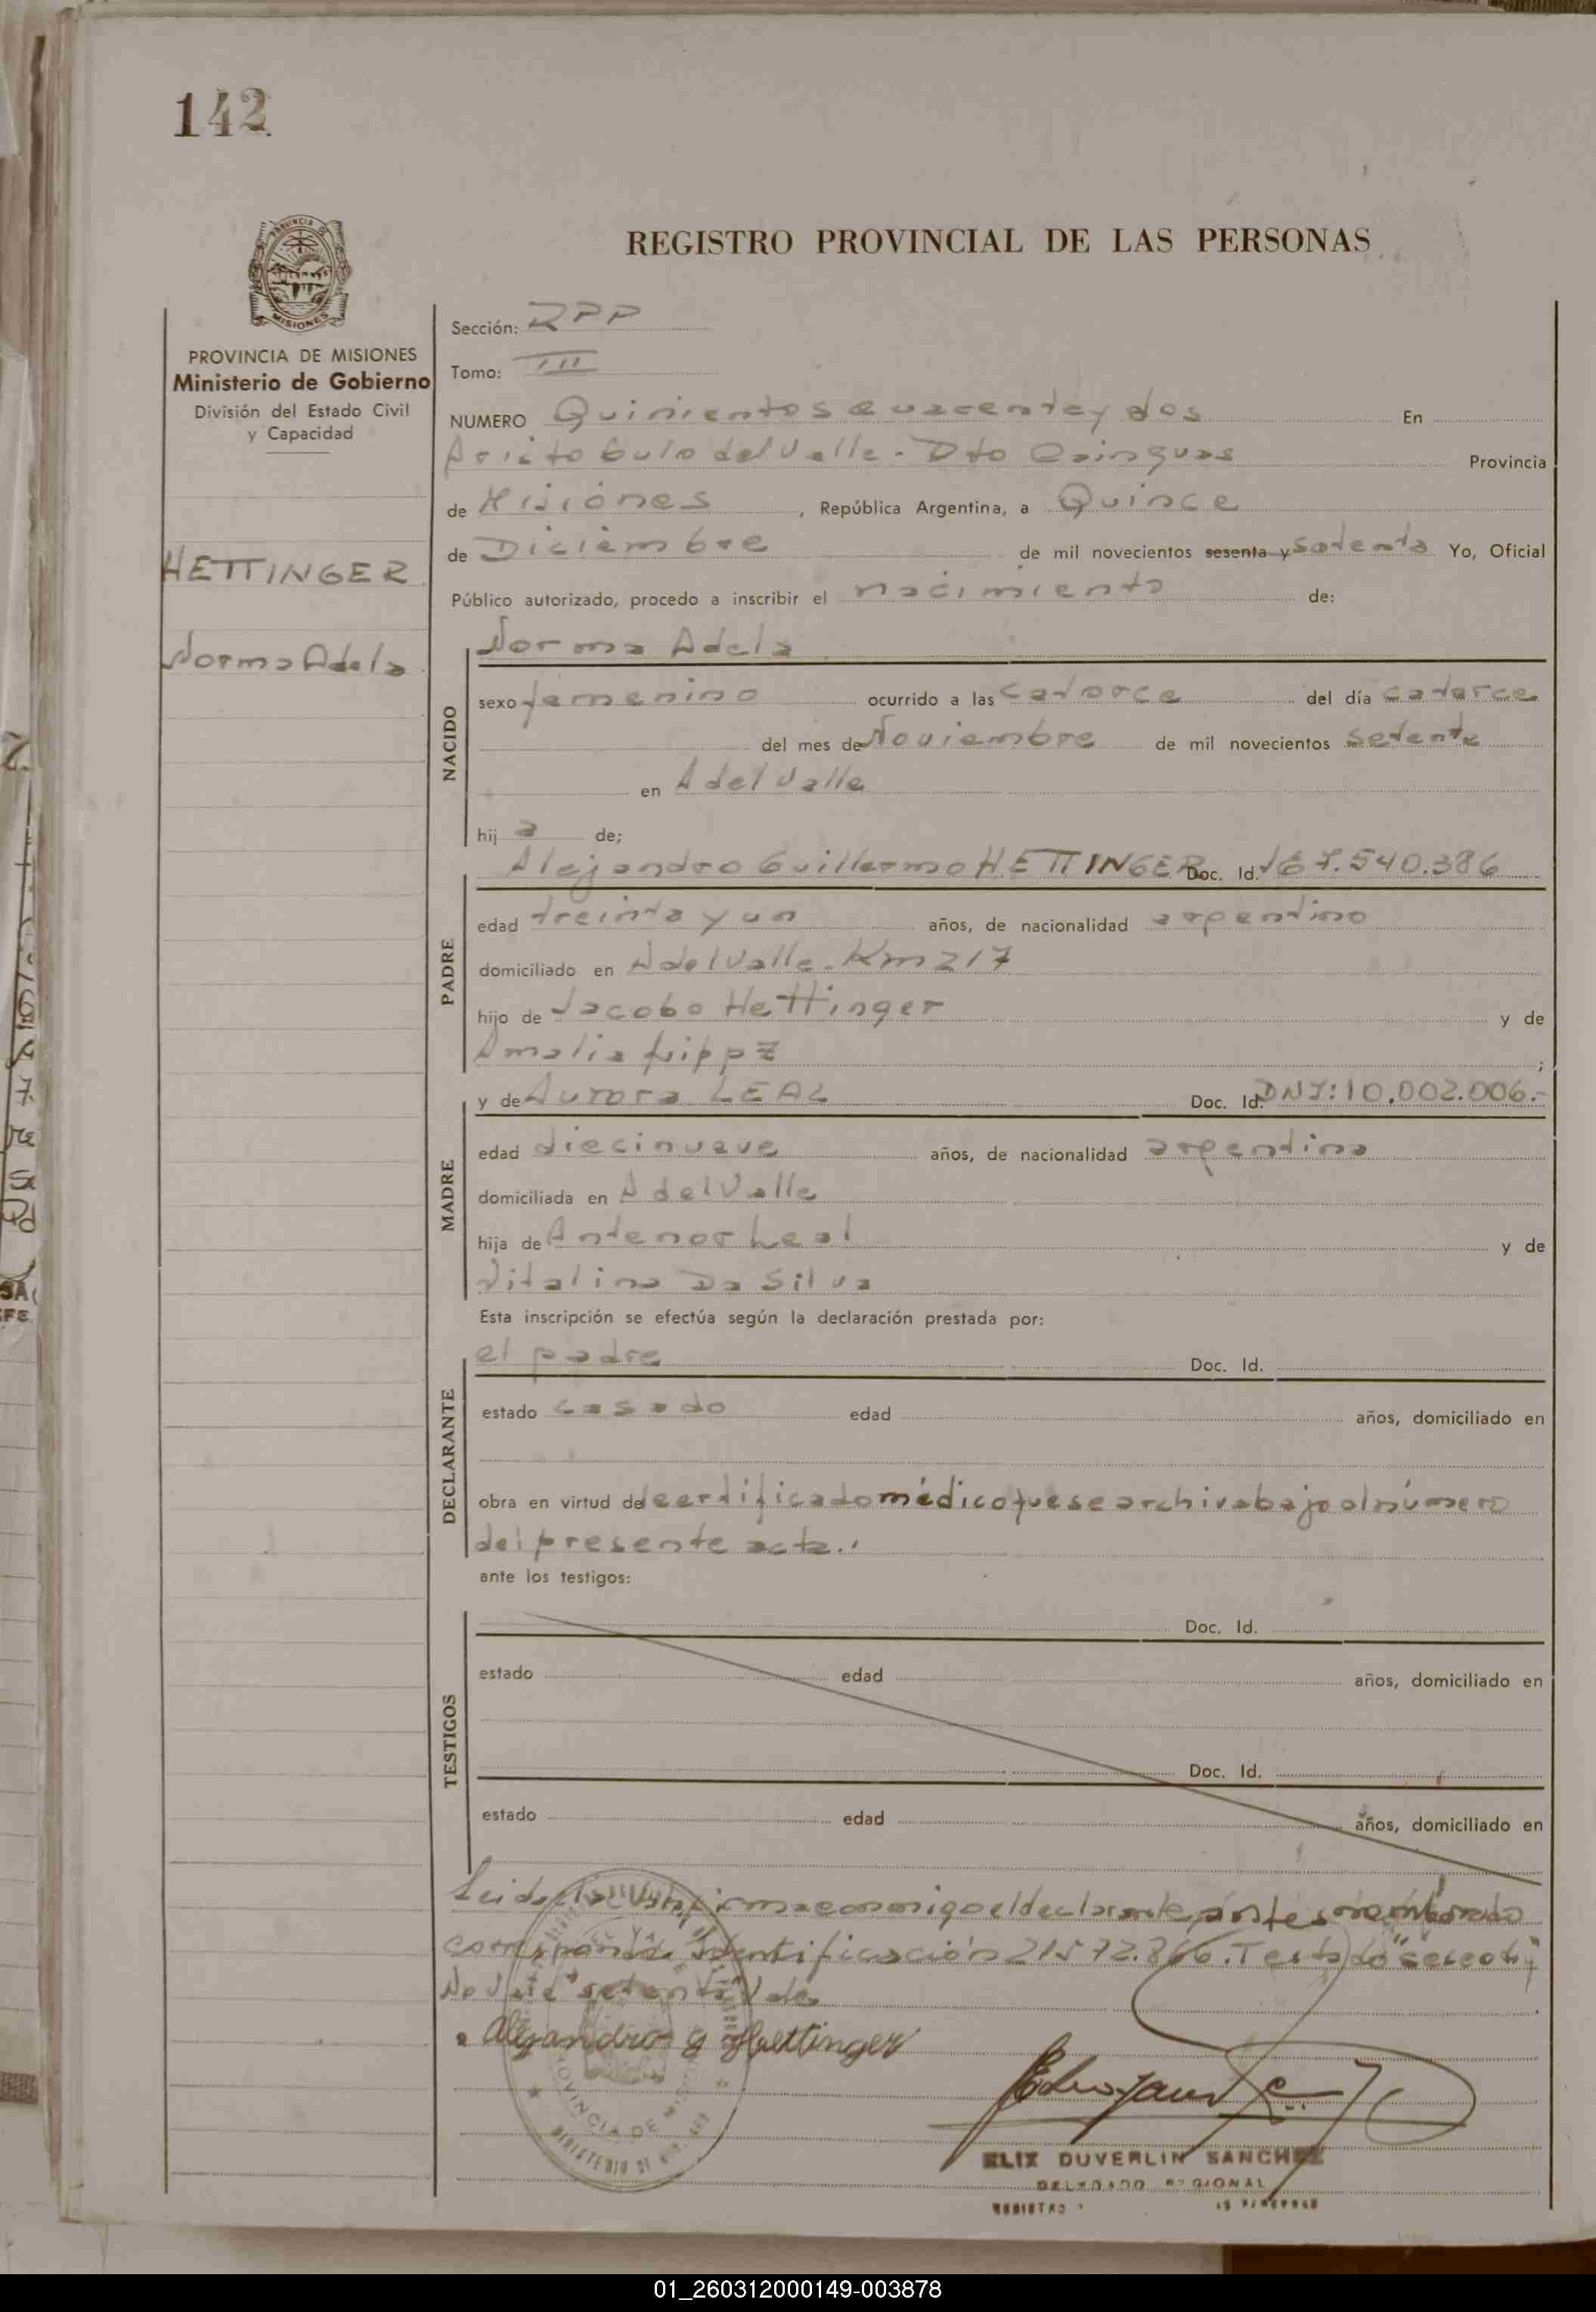 142
REGISTRO PROVINCIAL DE LAS PERSONAS
PROVINCIA DE MISIONES
Ministerio de Gobierno
División del Estado Civil
y Capacidad
HETTINGER
Norma Adela
Sección: RPP
Tomo: III
NUMERO Quinientos cuarenta y dos En
Aristobulo del Valle - Dto Cainguas Provincia
de Misiones, República Argentina, a Quince
de Diciembre de mil novecientos sesenta y setenta Yo, Oficial
Público autorizado, procedo a inscribir el nacimiento de:
NACIDO
Norma Adela
sexo femenino ocurrido a las catorce del día catorce
del mes de Noviembre de mil novecientos setenta
en A del Valle
hij a de;
PADRE
Alejandro Guillermo HETTINGER Doc. Id. 7.540.386
edad treinta y un años, de nacionalidad argentino
domiciliado en A del Valle - Km 217
hijo de Jacobo Hettinger y de
Amalia ;
MADRE
y de Aurora LEAL Doc. Id. DNI: 10.002.006.-
edad diecinueve años, de nacionalidad argentina
domiciliada en A del Valle
hija de Antenor Leal y de
Vitalina Da Silva
Esta inscripción se efectúa según la declaración prestada por:
DECLARANTE
el padre Doc. Id.
estado casado edad años, domiciliado en
obra en virtud del certificado médico que se archiva bajo el número
del presente acta.
ante los testigos:
TESTIGOS
Doc. Id.
estado edad años, domiciliado en
Doc. Id.
estado edad años, domiciliado en
Leida la firma conmigo el declarante antes nombrado
corresponde Identificación 21572.866. Testado "sesenta y"
No Vale "setenta" Vale
Alejandro g Haettinger
ELIX DUVERLIN SANCHEZ
DELEGADO REGIONAL
REGISTRO
PROVINCIA DE MISIONES
MINISTERIO DE
01_260312000149-003878